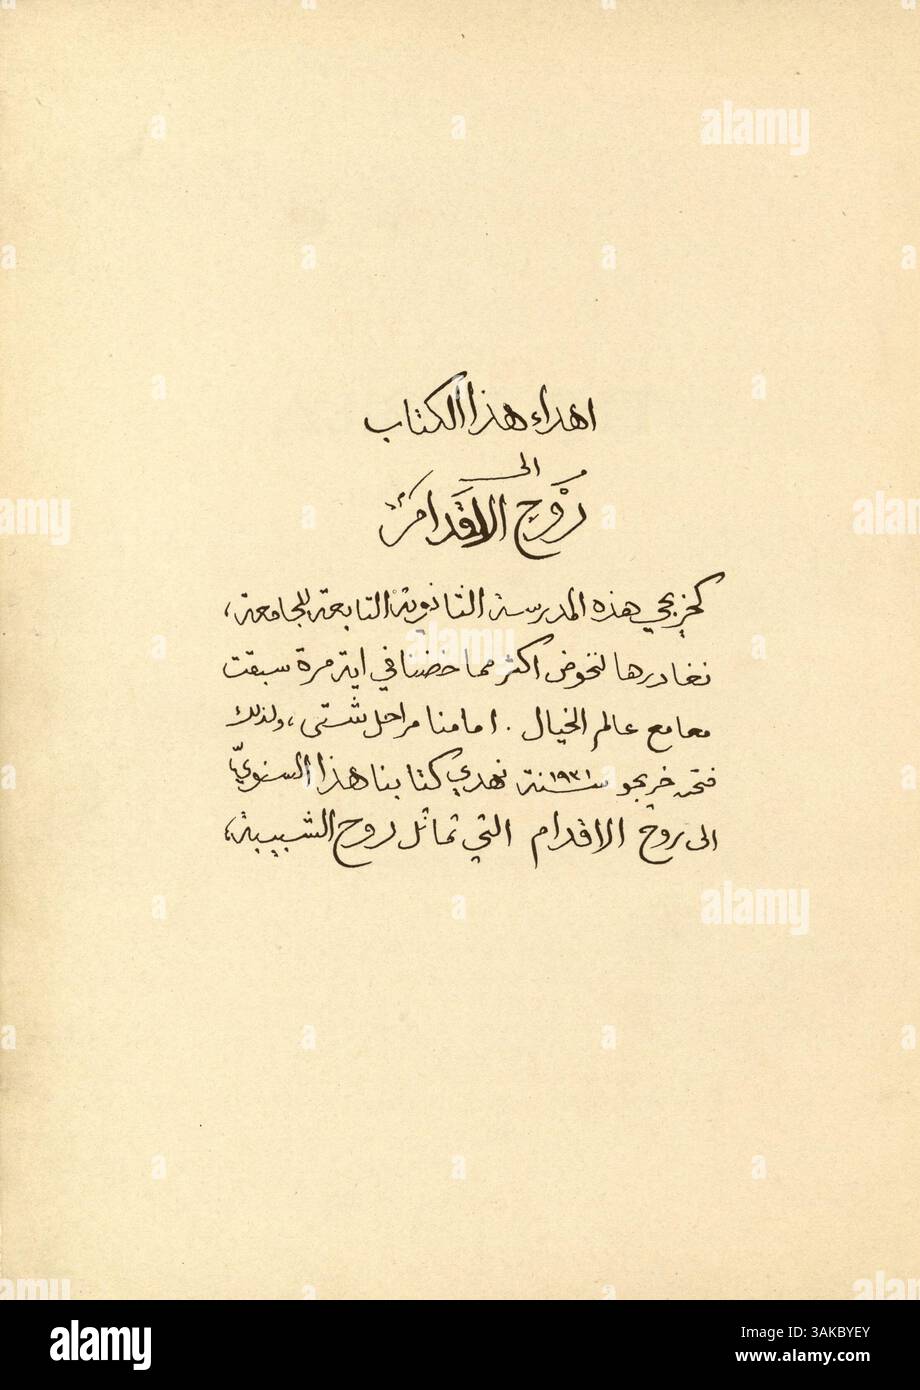 اهداء هذا الكتاب
الى
رَوْح الاقدام
كخريجي هذه المدرسة الثانوية التابعة للجامعة،
نغادرها لنخوض اكثر مما خضنا في اية مرة سبقت
معامع عالم الخيال. امامنا مراحل شتّى، ولذلك
فنحن خريجو سنة ١٩٣١ نهدي كتابنا هذا السنويّ
الى روح الاقدام التي تماثل روح الشبيبة،
alamy
Image ID: 3AKBYEY
www.alamy.com